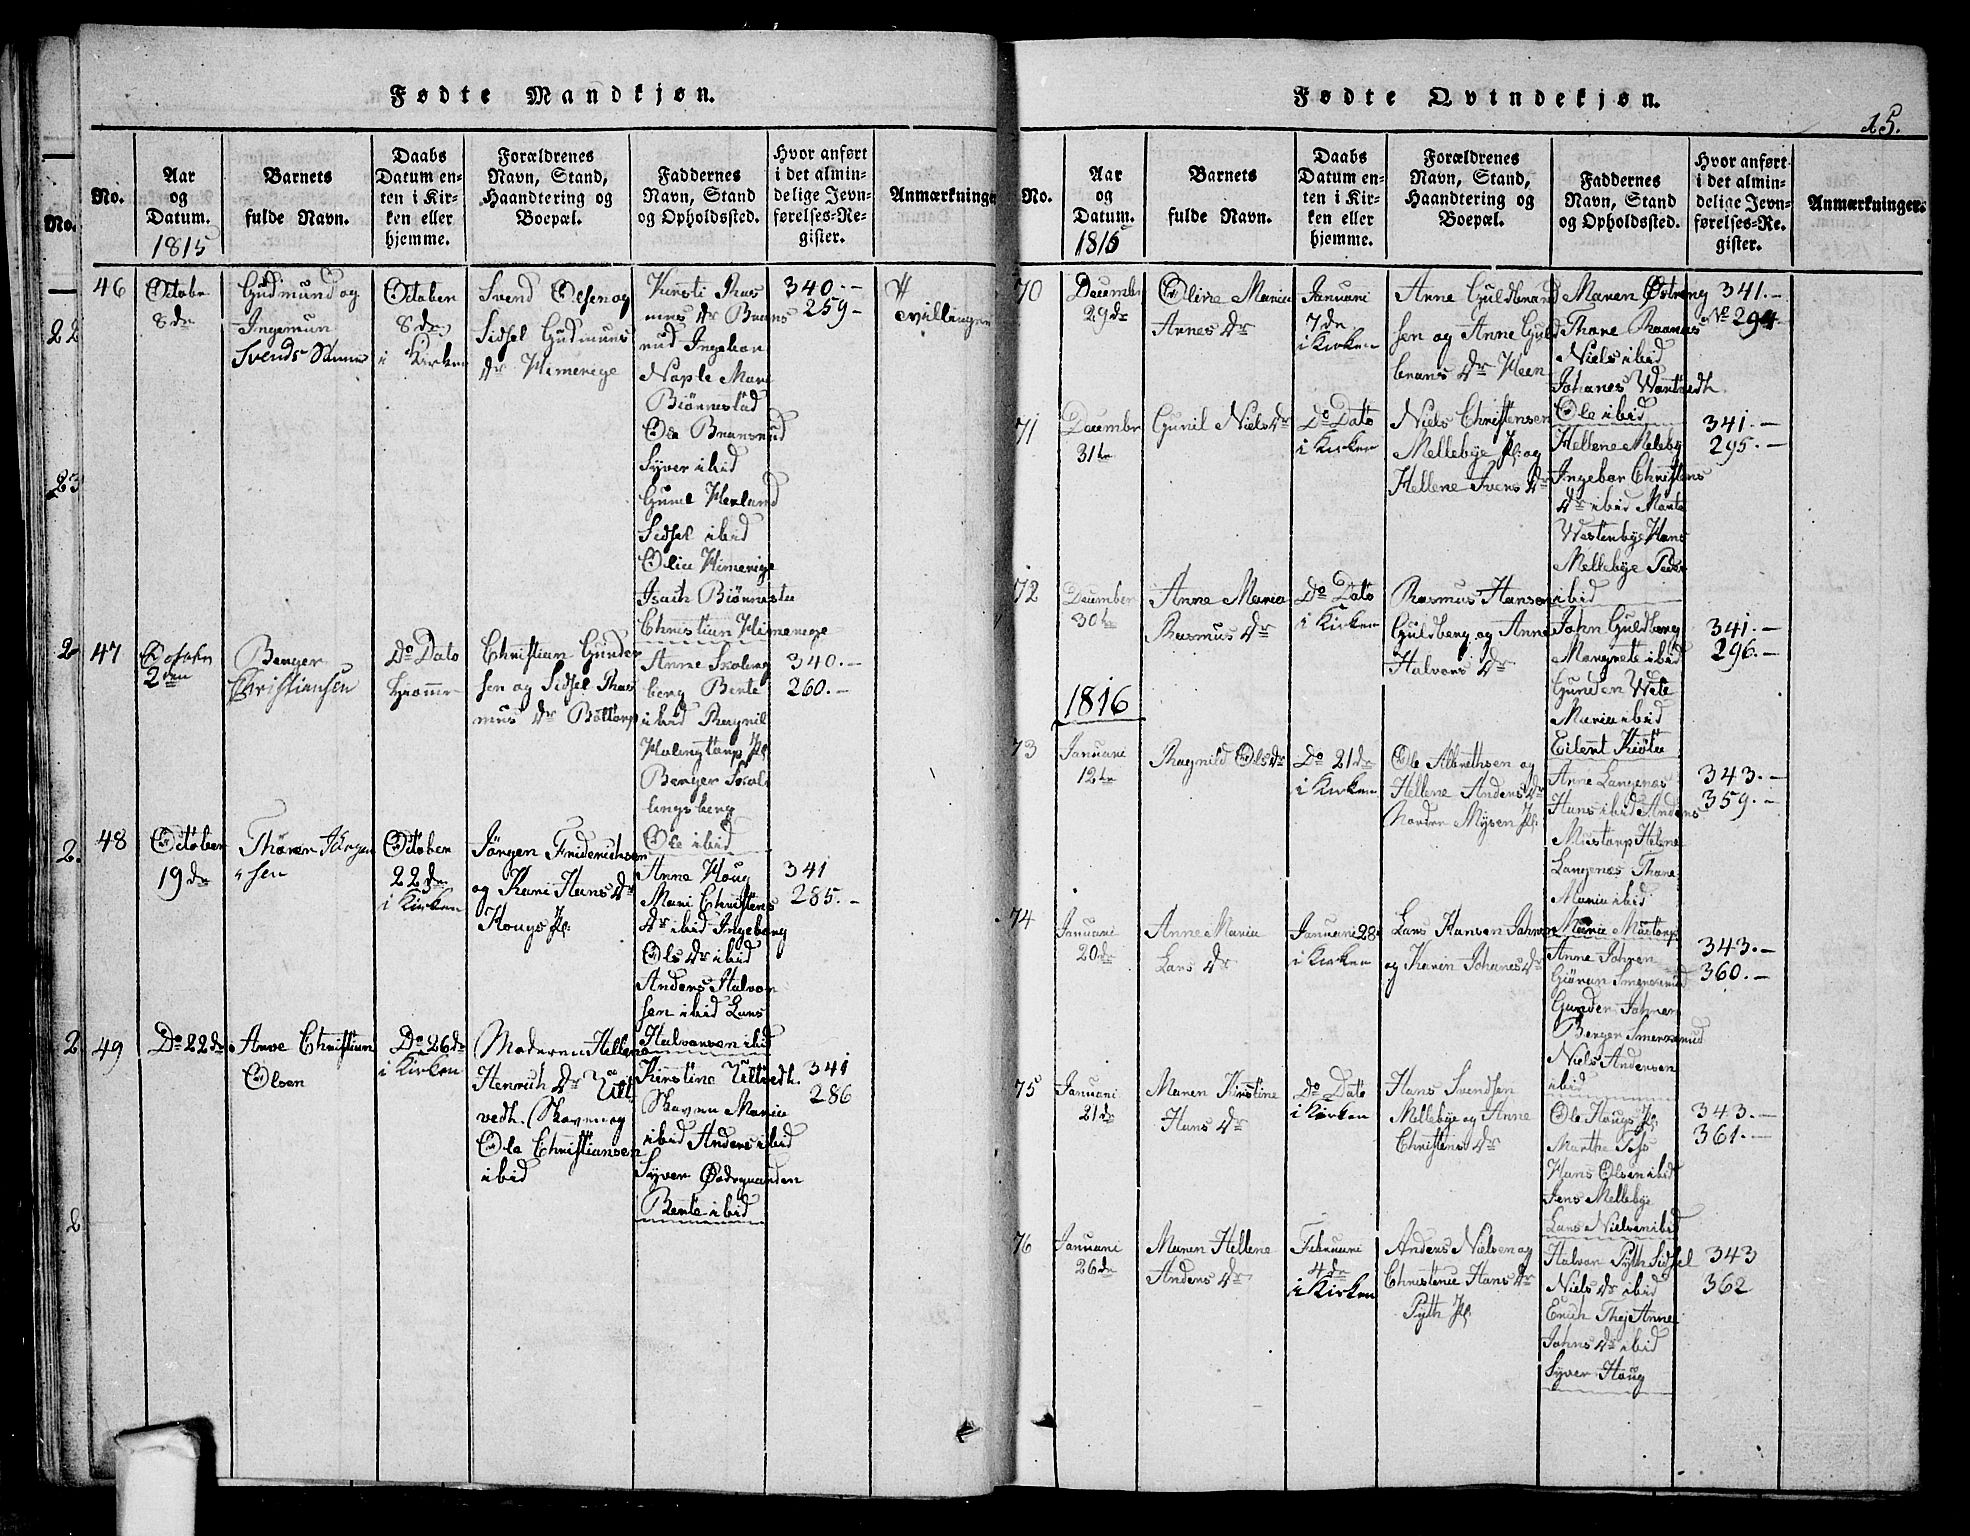 Fødte Mandkjøn.
No.
Aar
og
Datum.
1815
Barnets
fulde Navn.
Daabs
Datum en-
ten i Kir-
ken eller
hjemme.
Forældrenes
Navn, Stand,
Haandtering og
Boepæl.
Faddernes
Navn, Stand
og Opholdssted.
Hvor anført
i det almin-
delige Jevn-
førelses-Re-
gister.
Anmærkninge
No.
22
23
2
2.
2
2
46
Octobr
8de
Gudmund og
Ingemun
Svends Sønner
October
8de
i Kirken
Svend Olsen og
Sidsel Gudmuns
Dr Himerige
Kirsti Ras
mus Dr Brans
rud Ingebor
Naple Mari
Biønnestad
Ole Bransrud
Syver ibid
Gunil Herland
Sidsel ibid
Olia Himerige
Isach Biønnesta
Christian Himerige
340.-
259-
Tvillinger
47
October
2den
Berger
Christiansen
Do Dato
hjemme
Christian Gunder
sen og Sidsel Ras
mus Dr Bøttorp
Anne Skolleng
berg Bente
ibid Ragnil
Holmgtorp Pl.
Berger Skol
lengsberg
Ole ibid
340.-
260.-
48
October
19de
Thorer Jørgen
sen
October
22de
i Kirken
Jørgen Friderichsen
og Kari Hans Dr
Hougs Pl.
Anne Houg
Mari Christens
Dr ibid Ingeborg
Ols Dr ibid
Anders Halvor
sen ibid Lars
Halvorsen ibid
341
285.-
49
Do 22de
Arne Christian
Olsen
Do 26de
i Kirken
Moderen Hellene
Henrich Dr Ult
vedt. Skaven og
Ole Christiansen
ibid
Kirstine Ultvedt.
Skaven Maria
ibid Anders ibid
Syver Ødegaarden
Bente ibid
341
286
Fødte Qvindekjøn.
15.
No.
Aar
og
Datum.
1815
Barnets
fulde Navn.
Daabs
Datum en-
ten i Kir-
ken eller
hjemme.
Forældrenes
Navn, Stand,
Haandtering og
Boepæl.
Faddernes
Navn, Stand
og Opholdssted.
Hvor anført
i det almin-
delige Jevn-
førelses-Re-
gister.
Anmærkninger.
70
Decembr
29de
Oline Maria
Arnes Dr
Januari
7de
i Kirken
Arne Guldbrand
sen og Anne Guld
brans Dr Heen
Maren Østreng
Thore Raanaas
Niels ibid
Johanes Wartvedt
Ole ibid
341.-
No 294.
71
Decembr
31te
Gunil Niels Dr
Do Dato
i Kirken
Niels Christensen
Mellebye Pl. og
Hellene Ivers Dr
Hellene Meleby
Ingebor Christens
Dr ibid Marte
Westenbye Hans
Mellebye Peder
ibid
341.-
295.-
72
December
30te
Anne Maria
Rasmus Dr
Do Dato
i Kirken
Rasmus Hansen
Guldberg og Anne
Halvors Dr
John Guldberg
Margrete ibid
Gunder Wele
Maria ibid
Eilert Kiøta
341.-
296.-
1816
73
Januari
12te
Ragnild Ols Dr
Do 21de
i Kirken
Ole Albrethsen og
Hellene Anders Dr
Nordre Mysen Pl.
Anne Langenæs
Hans ibid Anders
Mustorp Helene
Langenæs Thore
Maria ibid
343.-
359.-
74
Januari
20de
Anne Maria
Lars Dr
Januari 28
i Kirken
Lars Hansen Jahren
og Karin Johanes Dr
Maria Mustorp
Anne Jahren
Giøran Smerrerud
Gunder Jahren
Berger Smerrerud
Niels Andersen
ibid
343.-
360.-
75
Januari
21de
Maren Kirstine
Hans Dr
Do Dato
i Kirken
Hans Svendsen
Mellebye og Anne
Christens Dr
Ole Hougs Pl.
Marthe
Hans Olsen ibid
Jens Mellebye
Lars Nielsen ibid
343.-
361.-
76
Januari
26de
Maren Hellene
Anders Dr
Februari
4de
i Kirken
Anders Nielsen og
Christence Hans Dr
Pyth Pl.
Halvor Pyth Sidsel
Niels Dr ibid
Erich Anne
Johns Dr ibid
Syver Houg
343
362